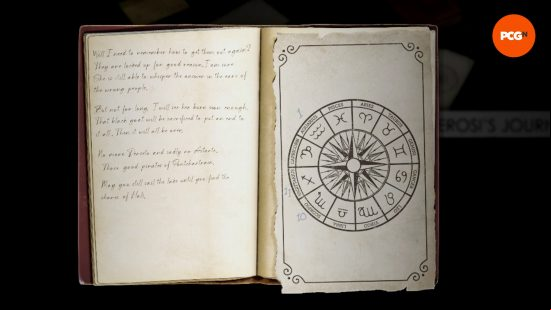 Will I need to remember how to get them out again?
They are locked up for good reason, I am sure
She is still able to whisper the answer in the ears of
the wrong people.
But not for long, I will see her burn soon enough.
That black goat will be sacrificed to put an end to
it all. Then it will all be over.
No more and sadly no
Those good pirates of
May you still sail the lake until you find the
shores of
1
11
10
PISCES
ARIES
TAURUS
GEMINI
CANCER
LEO
VIRGO
LIBRA
SCORPIO
SAGITTARIUS
CAPRICORN
AQUARIUS
EROSI'S JOURN
PCGN